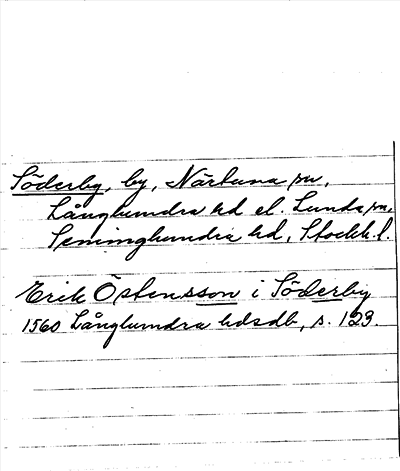 Söderby, by, Närtuna sn,
Långhundra hd el. Lunda sn,
Seminghundra hd, Stockh. l.
Erik Östensson i Söderby
1560 Långhundra hdsdb, s. 123.